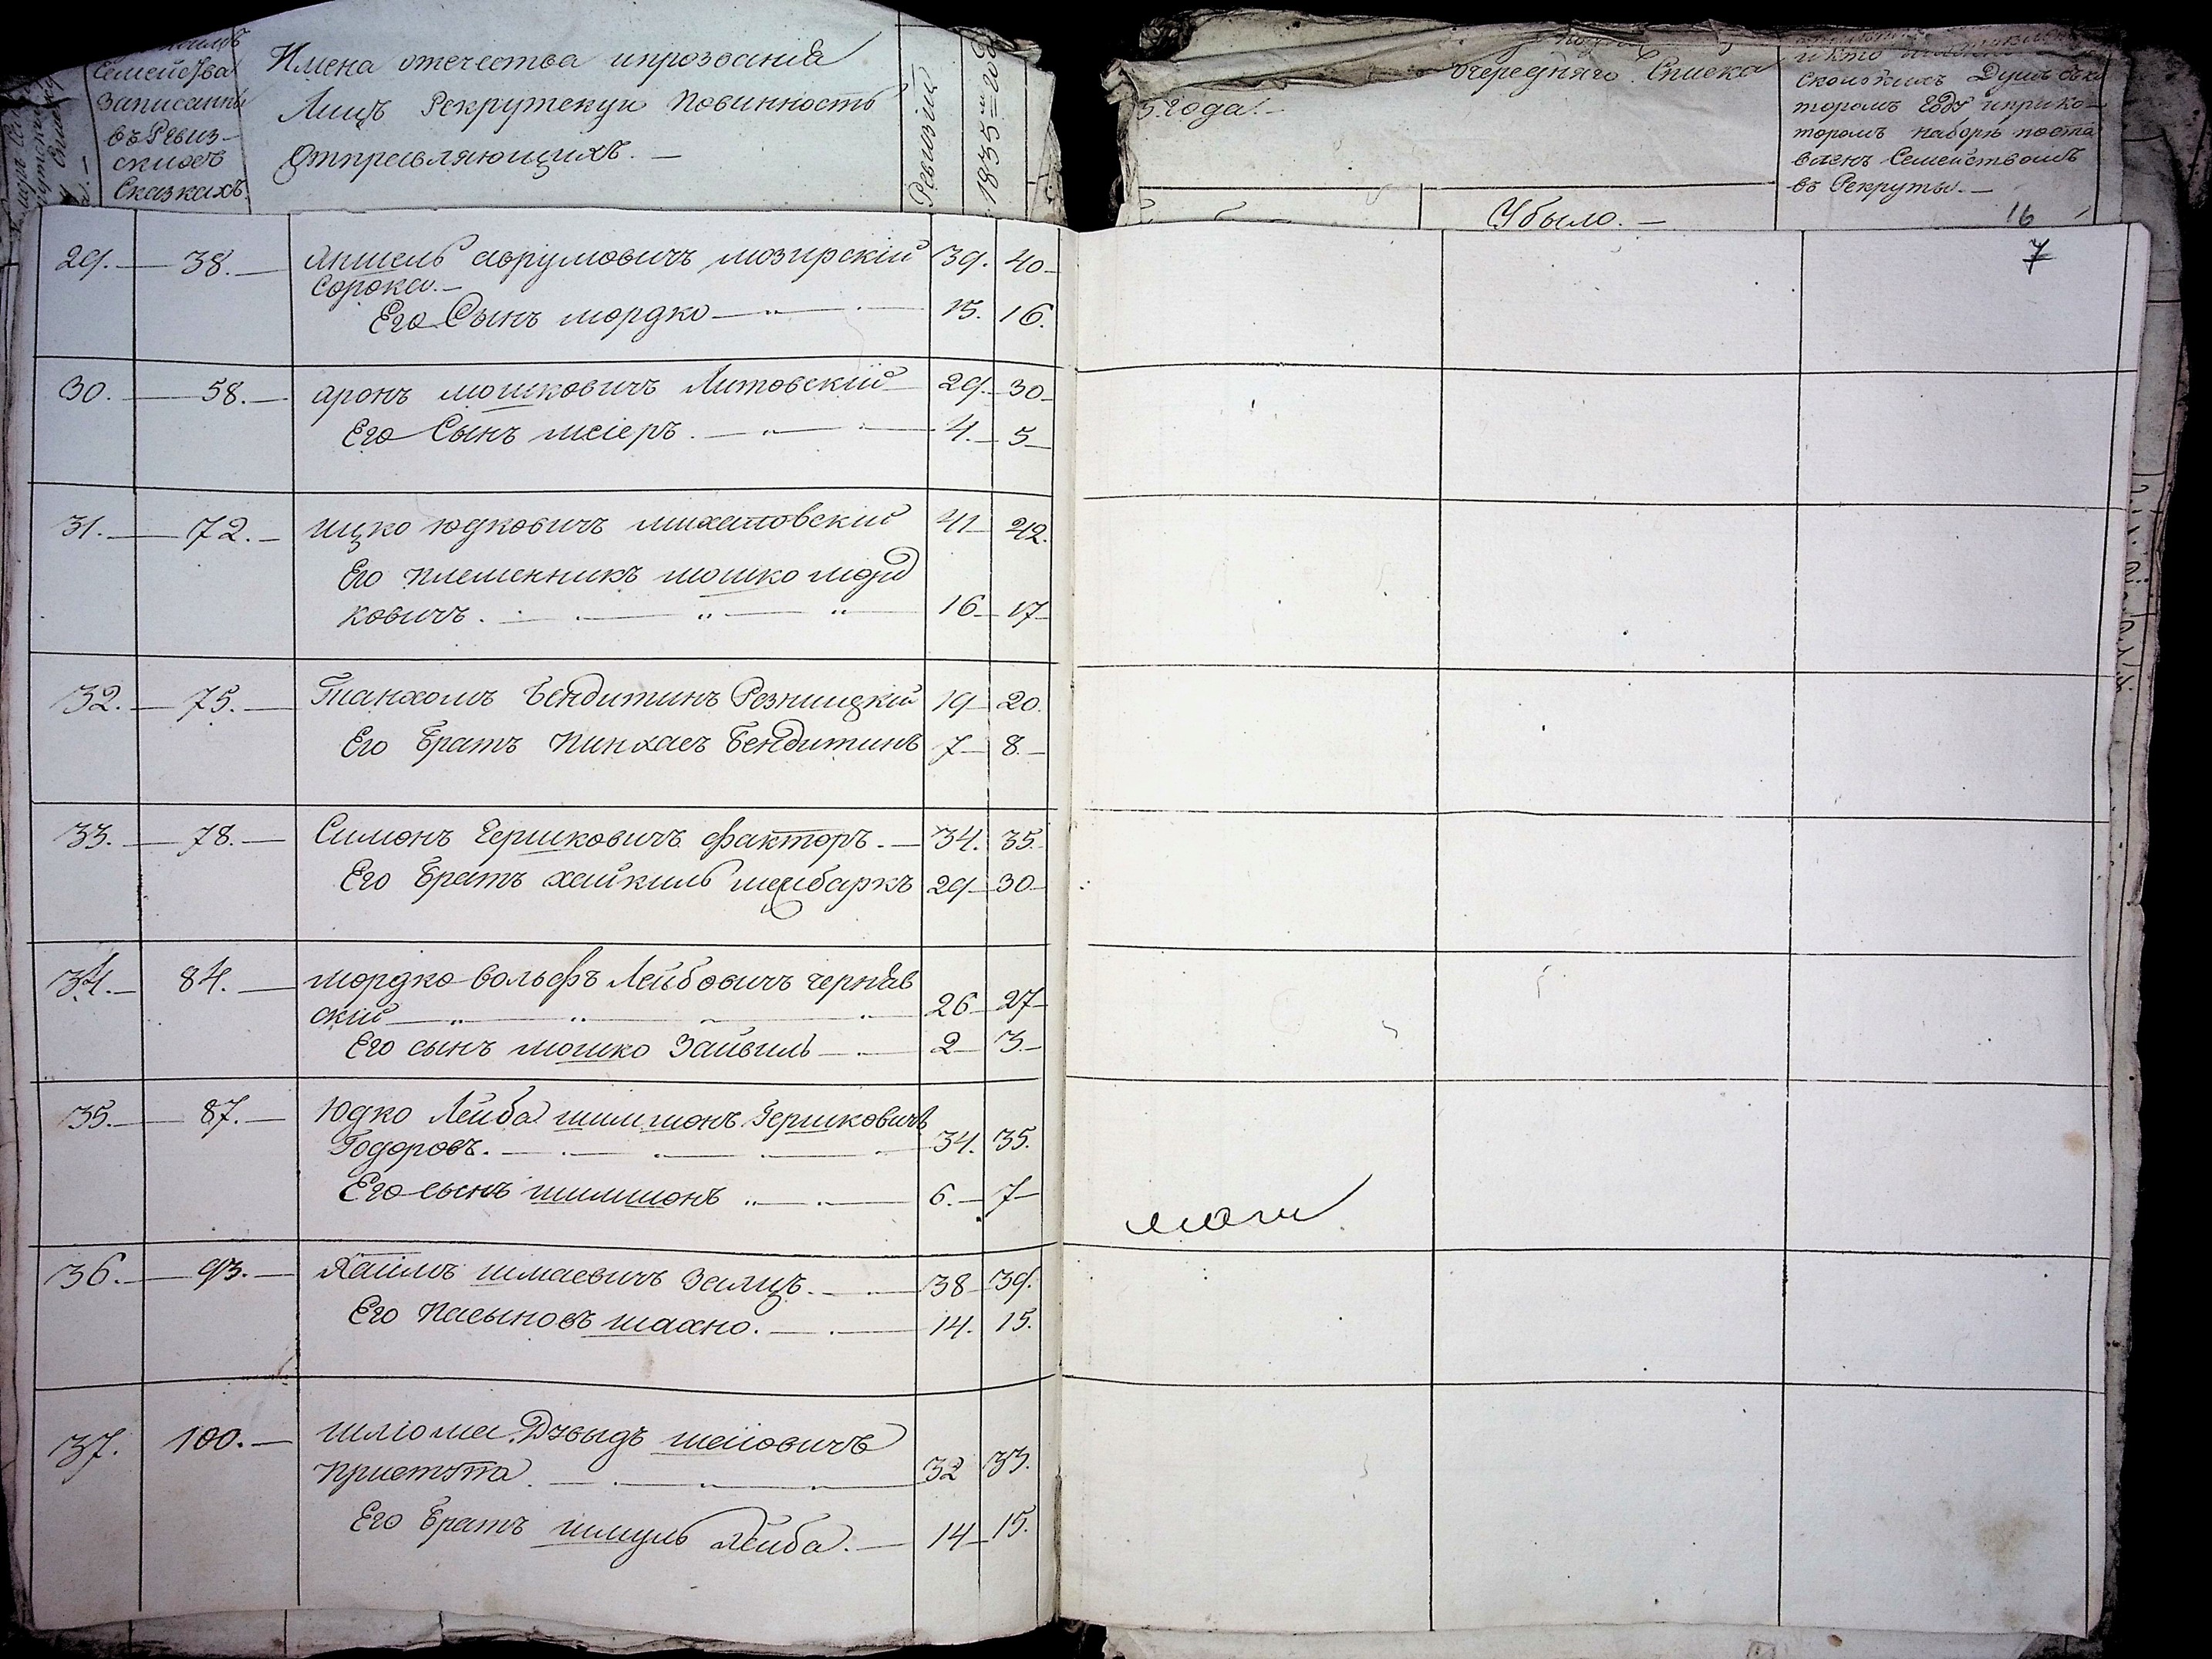 Семейства
Записанны
въ Ревиз-
скихъ
Сказкахъ.
Имена отечества ипрозванія
Лицъ Рекрутскую Повинность
Отправляющихъ. —
Ревизіи
1835 года
Очереднаго Списка
5 года. —
Убыло. —
сколькихъ Душъ вко
торомъ году иприко-
торомъ наборѣ поста
вленъ Семействомъ
въ Рекруты. —
16
7
29. — 38. — Аншель Аврумовичъ мозирскій 39. 40
Сорока. —
Его Сынъ мордко — 15. 16.
30. — 58. — аронъ мошковичъ Литовскій 29. 30
Его Сынъ меіеръ. — 4. 5
31. — 72. — ицко юдковичъ михаловскій 41 42.
Его племенникъ мошко морд
ковичъ. — 16 17
32. — 75. — Танхомъ Бендитинъ Резницкій 19 20.
Его Братъ Пинхасъ Бендитинъ 7 8. —
33. — 78. — Симонъ Гершковичъ факторъ. — 34. 35.
Его Братъ хайкиль 29 30
34. — 84. — мордко вольфъ Лейбовичъ черняв
скій — 26 27
Его сынъ мошко Зайвиль — 2 3. —
35. — 87. — Юдко Лейба шимшонъ Гершковичъ
Тодоровъ. — 34. 35.
Его сынъ шимшонъ — 6. 7
36. — 93. — Хаимъ шмаевичъ Залицъ. — 38 39.
Его Пасынокъ шахно. — 14. 15.
37. 100. — шліома Двыдъ шаіовичъ
приступа. — 32 33.
Его Братъ шмуль Лейба. — 14 15.